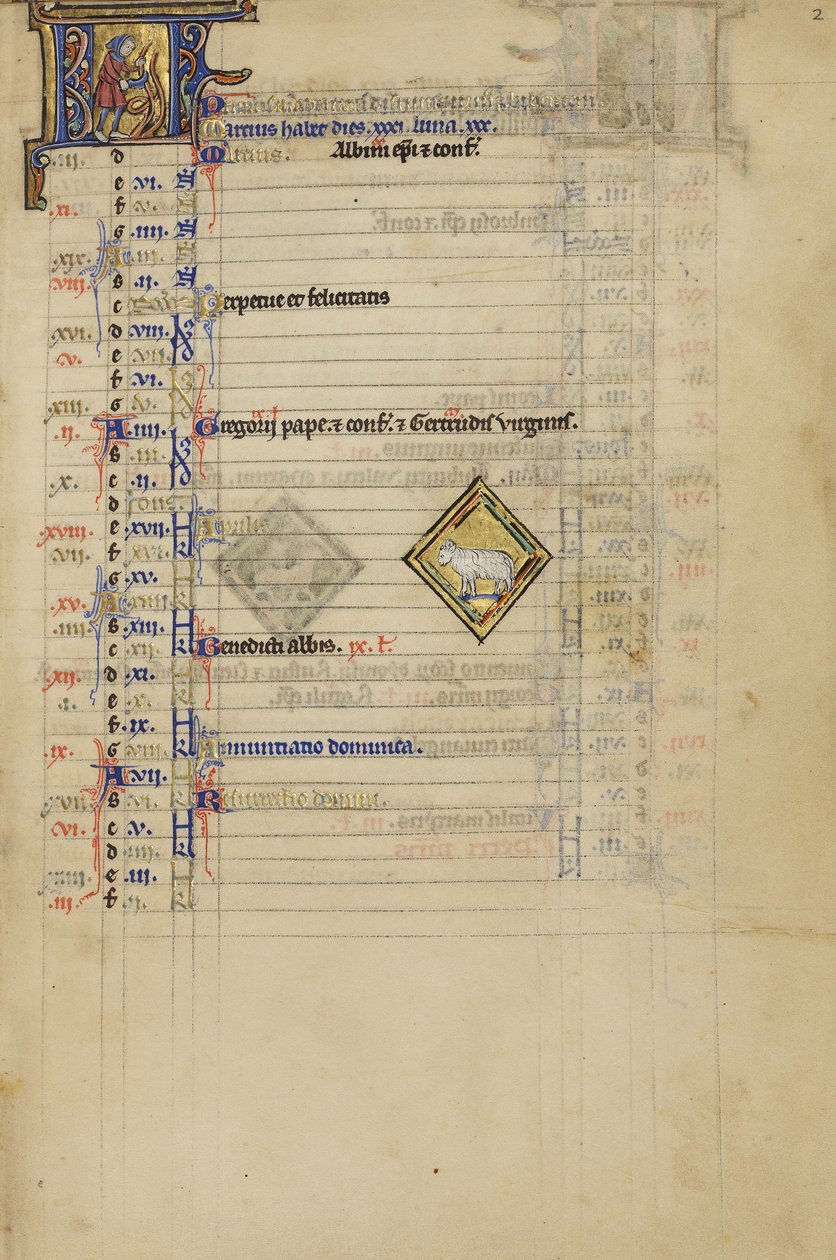 2
Marcius habet dies .xxxi. luna .xxx.
.iii. d Marcius. Albini ep̄i ⁊ conf̄.
e .vi.
.xi. f .v.
g .iiii.
.xix. A .iii.
.viii. b .ii.
c Perpetue et felicitatis
.xvi. d .viii.
.v. e .vii.
f .vi.
.xiii. g .v.
.ii. A .iiii. Gregorij pape. ⁊ conf̄. ⁊ Gertrudis virginis.
b .iii.
.x. c .ii.
d Aprilis
.xviii. e .xvii.
.vii. f .xvi.
g .xv.
.xv. A .xiiii.
.iiii. b .xiii.
c .xii. Benedicti abbis. ix. l̄.
.xii. d .xi.
.i. e .x.
f .ix.
.ix. g .viii. Annuntiatio dominica.
A .vii.
.xvii. b .vi. Resurrectio domini.
.vi. c .v.
d .iiii.
.xiiii. e .iii.
.iii. f .ii.